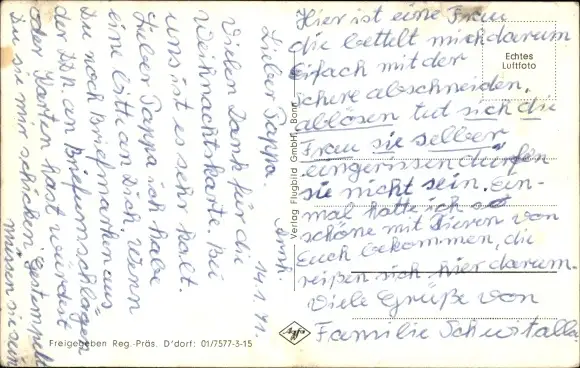 14.1.71.
Lieber Pappa.
Vielen Dank für die
Weihnachtskarte. Bei
uns ist es sehr kalt.
Lieber Pappa ich habe
eine bitte an Dich. Wenn
Du noch Briefmarken aus
der DDR. an Briefumschlägen
oder Karten hast würdest
Du sie mir schicken. Gestempelt
müssen sie sein
Hier ist eine Frau
die bettelt mich darum
Eifach mit der
Schere abschneiden.
ablösen tut sich die
Frau sie selber
eingerissen dürfen
sie nicht sein. Ein-
mal hatte ich
schöne mit Tieren von
Euch bekommen, die
reißen sich hier darum.
Viele Grüße von
Familie
Echtes
Luftfoto
Verlag Flugbild GmbH, Bonn
Agfa
Freigegeben Reg.-Präs. D'dorf: 01/7577-3-15